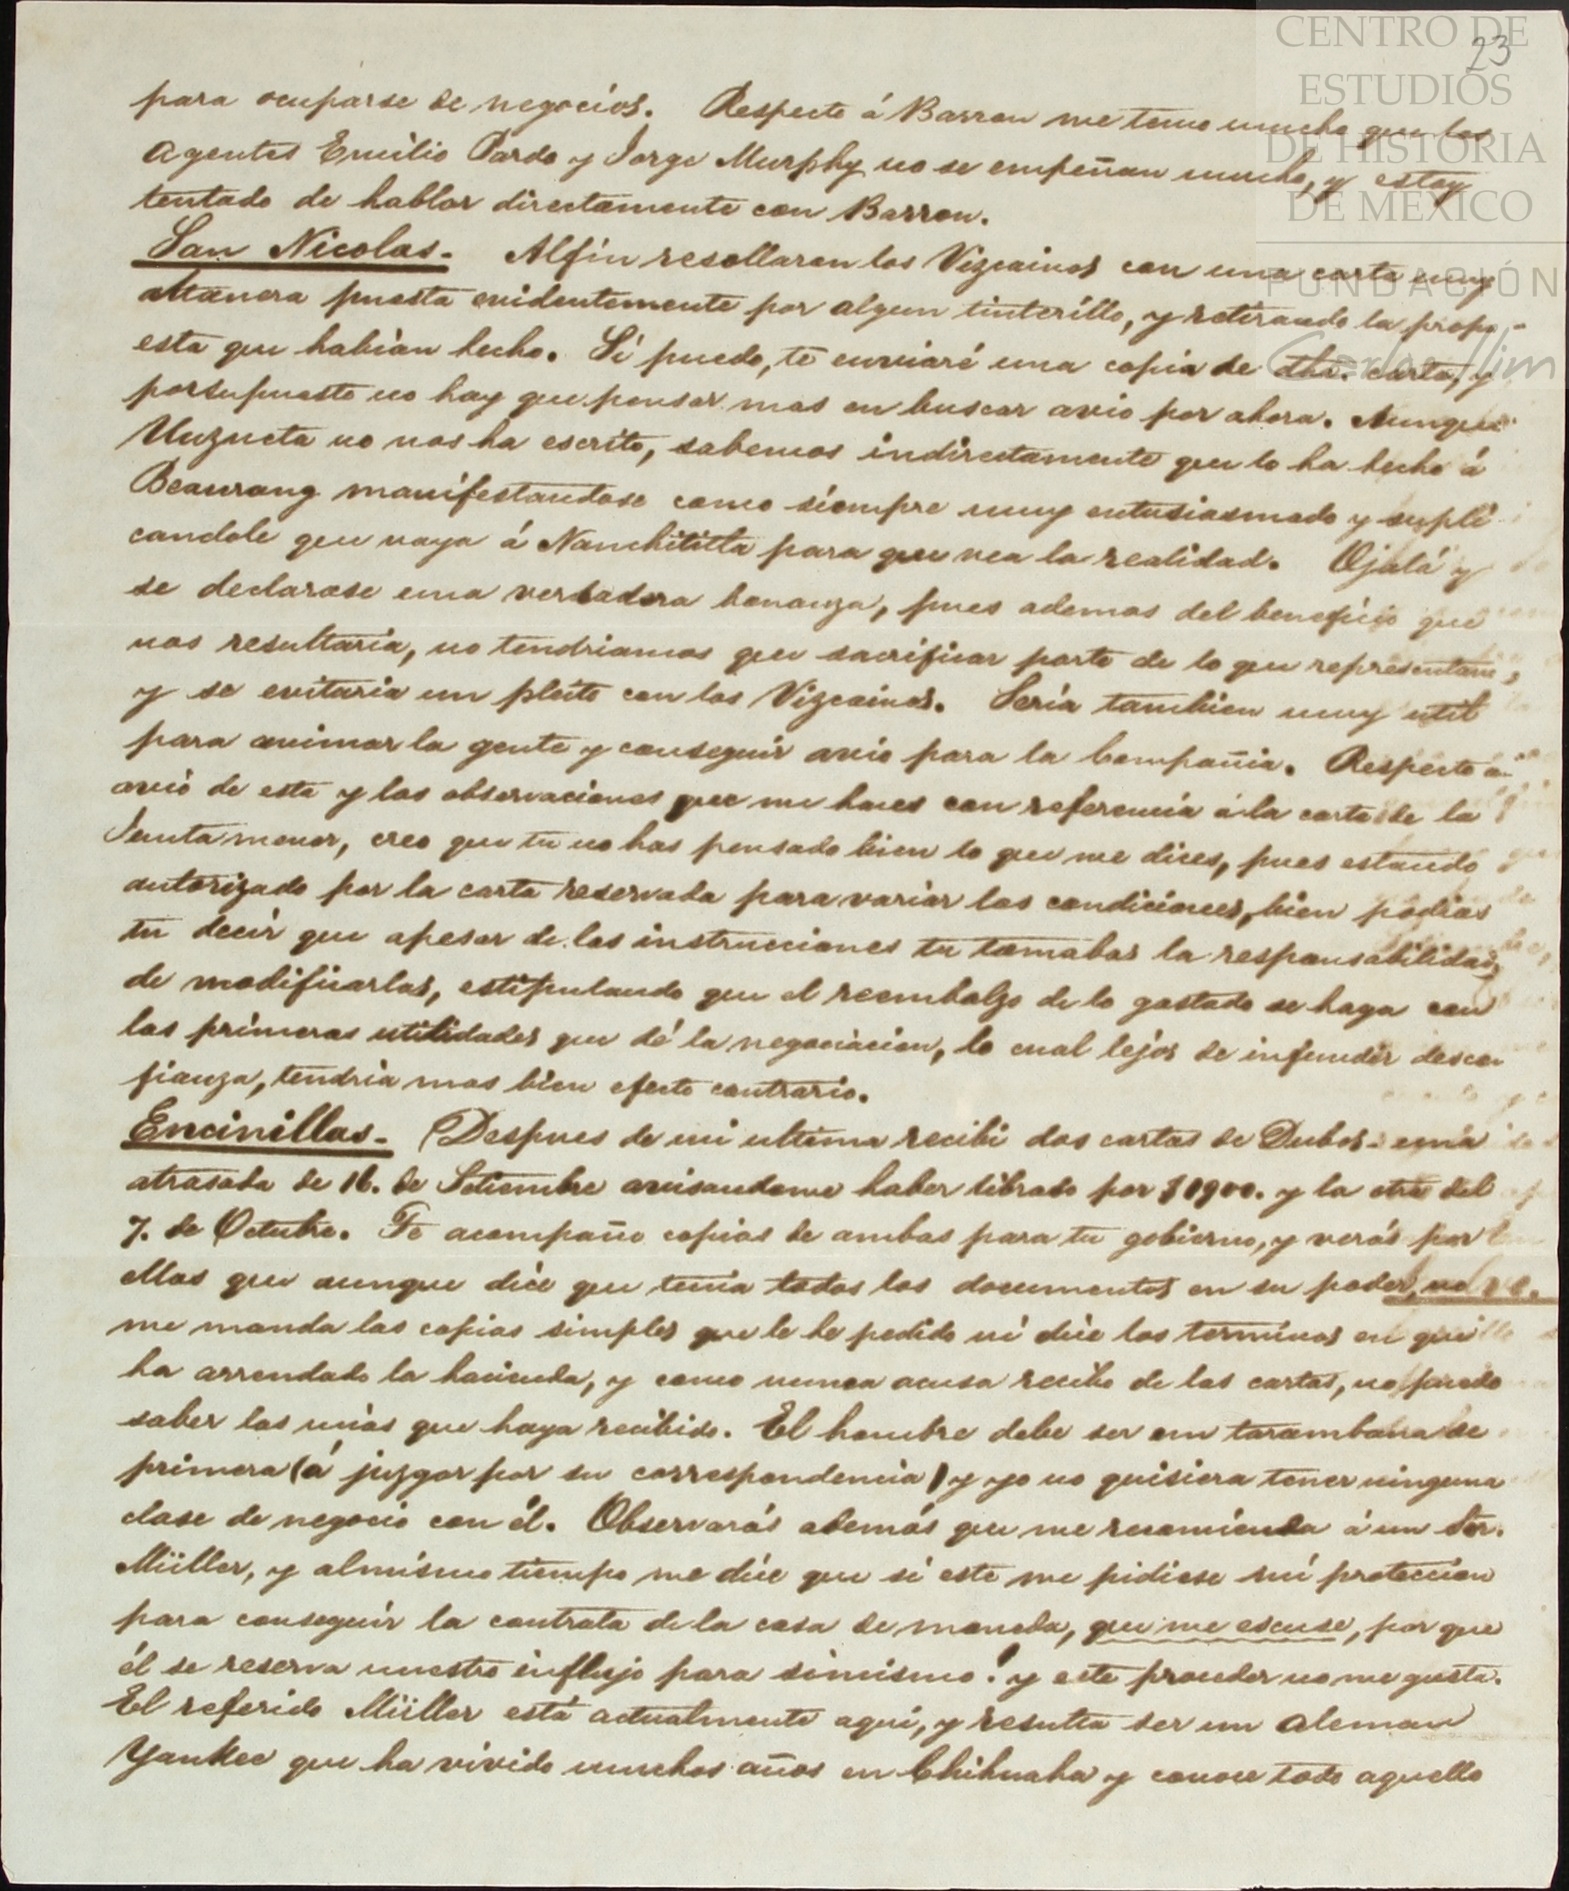 CENTRO DE
ESTUDIOS
DE HISTORIA
DE MÉXICO
FUNDACIÓN
Carlos Slim
23
para ocuparse de negocios. Respecto á Barron me temo mucho que los
Agentes Emilio Pardo y Jorge Murphy no se empeñan mucho, y estoy
tentado de hablar directamente con Barron.
San Nicolas. Alfin resollaron los Vizcainos con una carta muy
altanera puesta evidentemente por algun tinterillo, y retirando la propu-
esta que habian hecho. Si puedo, te enviaré una copia de dha. carta, y
porsupuesto no hay que pensar mas en buscar avio por ahora. Aunque
Unzueta no nos ha escrito, sabemos indirectamente que lo ha hecho á
Beaurang manifestandose como siempre muy entusiasmado y supli
candole que vaya á Nanchititla para que vea la realidad. Ojalá y
se declarase una verdadera bonanza, pues ademas del beneficio que
nos resultaria, no tendriamos que sacrificar parte de lo que representam,
y se evitaria un pleito con los Vizcainos. Seria tambien muy util
para animar la gente y conseguir avio para la Compañia. Respecto á
avio de esta y las observaciones que me haces con referencia á la carta de la
Junta menor, creo que tu no has pensado bien lo que me dices, pues estando
autorizado por la carta reservada para variar las condiciones, bien podias
tu decir que apesar de las instrucciones tu tomabas la responsabilidad
de modificarlas, estipulando que el reembolzo de lo gastado se haga con
las primeras utilidades que dé la negociacion, lo cual lejos de infundir descon
fianza, tendria mas bien efecto contrario.
Encinillas. Despues de mi ultima recibi dos cartas de Dubos- una
atrasada de 16. de Setiembre avisandome haber librado por $1900. y la otra del
7. de Octubre. Te acompaño copias de ambas para tu gobierno, y verás por
ellas que aunque dice que tenia todos los documentos en su poder, no
me manda las copias simples que le he pedido ni dice los terminos en que
ha arrendado la hacienda, y como nunca acusa recibo de las cartas, no puedo
saber las mias que haya recibido. El hombre debe ser un tarambana de
primera (á juzgar por su correspondencia) y yo no quisiera tener ninguna
clase de negocio con él. Observarás además que me recomienda á un Sor.
Müller, y almismo tiempo me dice que si este me pidiese mi proteccion
para conseguir la contrata de la casa de moneda, que me escuse, por que
él se reserva nuestro influjo para simismo! y este proceder no me gusta.
El referido Müller está actualmente aqui, y resulta ser un Aleman
Yankee que ha vivido muchos años en Chihuaha y conoce todo aquello